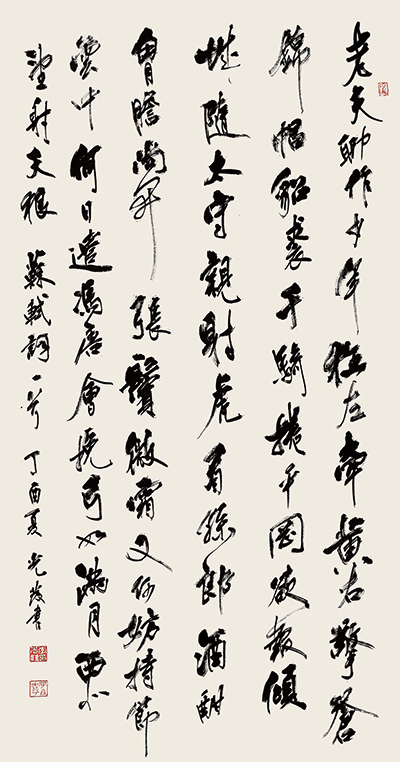 老夫聊作少年狂左牽黃右擎蒼
錦帽貂裘千騎捲平岡欲報傾
城隨太守親射虎看孫郎酒酣
胸膽尚開張鬢微霜又何妨持節
雲中何日遣馮唐會挽弓如滿月西北
望射天狼 蘇軾詞一首 丁酉夏 光書